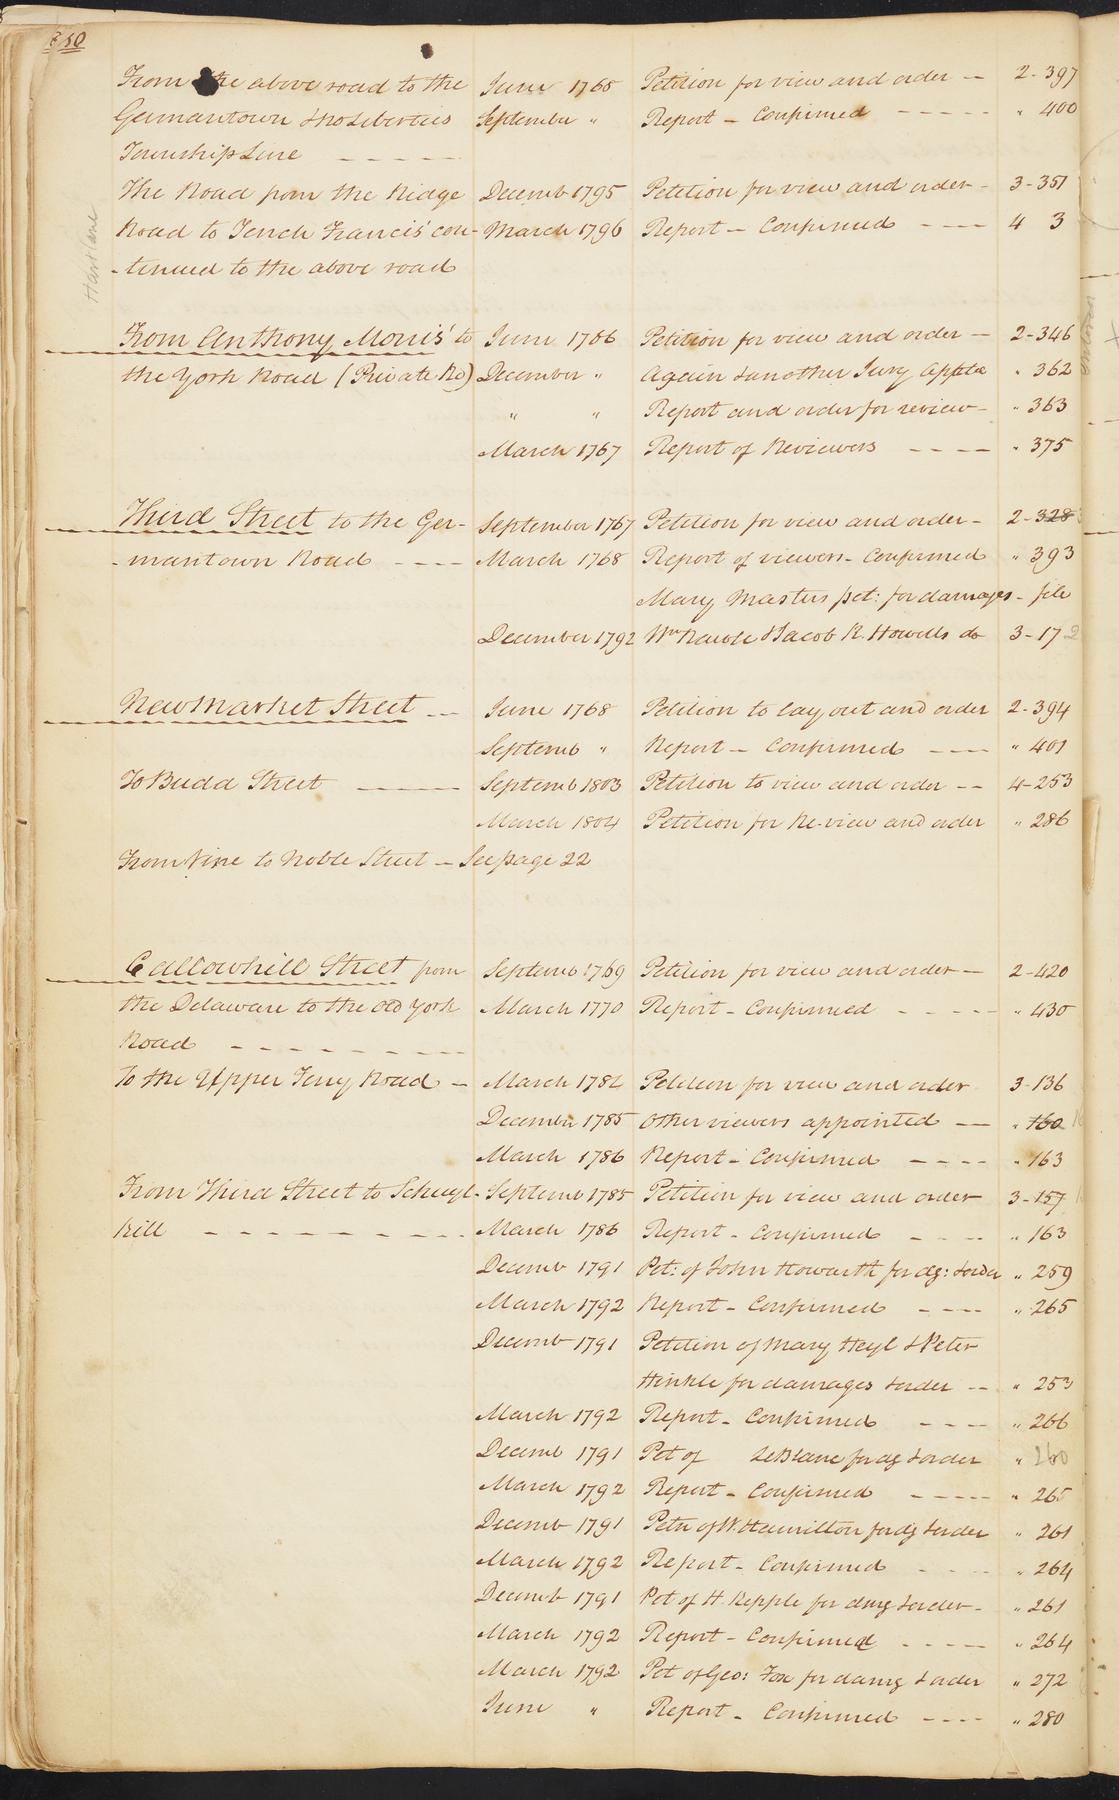 50
From the above road to the June 1765 Petition for view and order -- 2-397
Germantown & No Liberties September " Report - Confirmed ----- " 400
Township Line -----
The Road from the Ridge Decemb 1795 Petition for view and order - 3-351
Road to Tench Francis' con- March 1796 Report - Confirmed ---- 4 3
-tinued to the above road
Hart Lane
From Anthony Morris' to June 1766 Petition for view and order - 2-346
the York Road (Private Rd) December " Again & another Jury Appt'd " 362
" " Report and order for review - " 363
March 1767 Report of Reviewers ---- " 375
Third Street to the Ger- September 1767 Petition for view and order - 2-328
-mantown Road ---- March 1768 Report of viewers - Confirmed " 393
Mary Masters pet: for damages - file
December 1792 Wm Rawle & Jacob R. Howells do 3-172
New Market Street -- June 1768 Petition to lay out and order 2-394
Septemb " Report - Confirmed ---- " 401
To Budd Street ---- Septemb 1803 Petition to view and order -- 4-253
March 1804 Petition for Re-view and order " 286
From Vine to Noble Street - See page 22
Callowhill Street from Septemb 1769 Petition for view and order - 2-420
the Delaware to the Old York March 1770 Report - Confirmed ----- " 430
Road ---------
To the Upper Ferry Road - March 1782 Petition for view and order 3-136
December 1785 Other viewers appointed -- " 160
March 1786 Report - Confirmed ---- " 163
From Third Street to Schuyl- Septemb 1785 Petition for view and order 3-157
kill --------- March 1786 Report - Confirmed ---- " 163
Decemb 1791 Pet: of John Howarth for dg: & order " 259
March 1792 Report - Confirmed ---- " 265
Decemb 1791 Petition of Mary Heyl & Peter
Hinkle for damages & order -- " 253
March 1792 Report - Confirmed ---- " 266
Decemb 1791 Pet of LeBlanc for dg & order " 260
March 1792 Report - Confirmed ----- " 265
Decemb 1791 Petn of W. Hamilton for dg & order " 261
March 1792 Report - Confirmed ---- " 264
Decemb 1791 Pet of H. Kepple for dmg & order - " 261
March 1792 Report - Confirmed ---- " 264
March 1792 Pet of Geo: Fox for damg & order " 272
June " Report - Confirmed ---- " 280